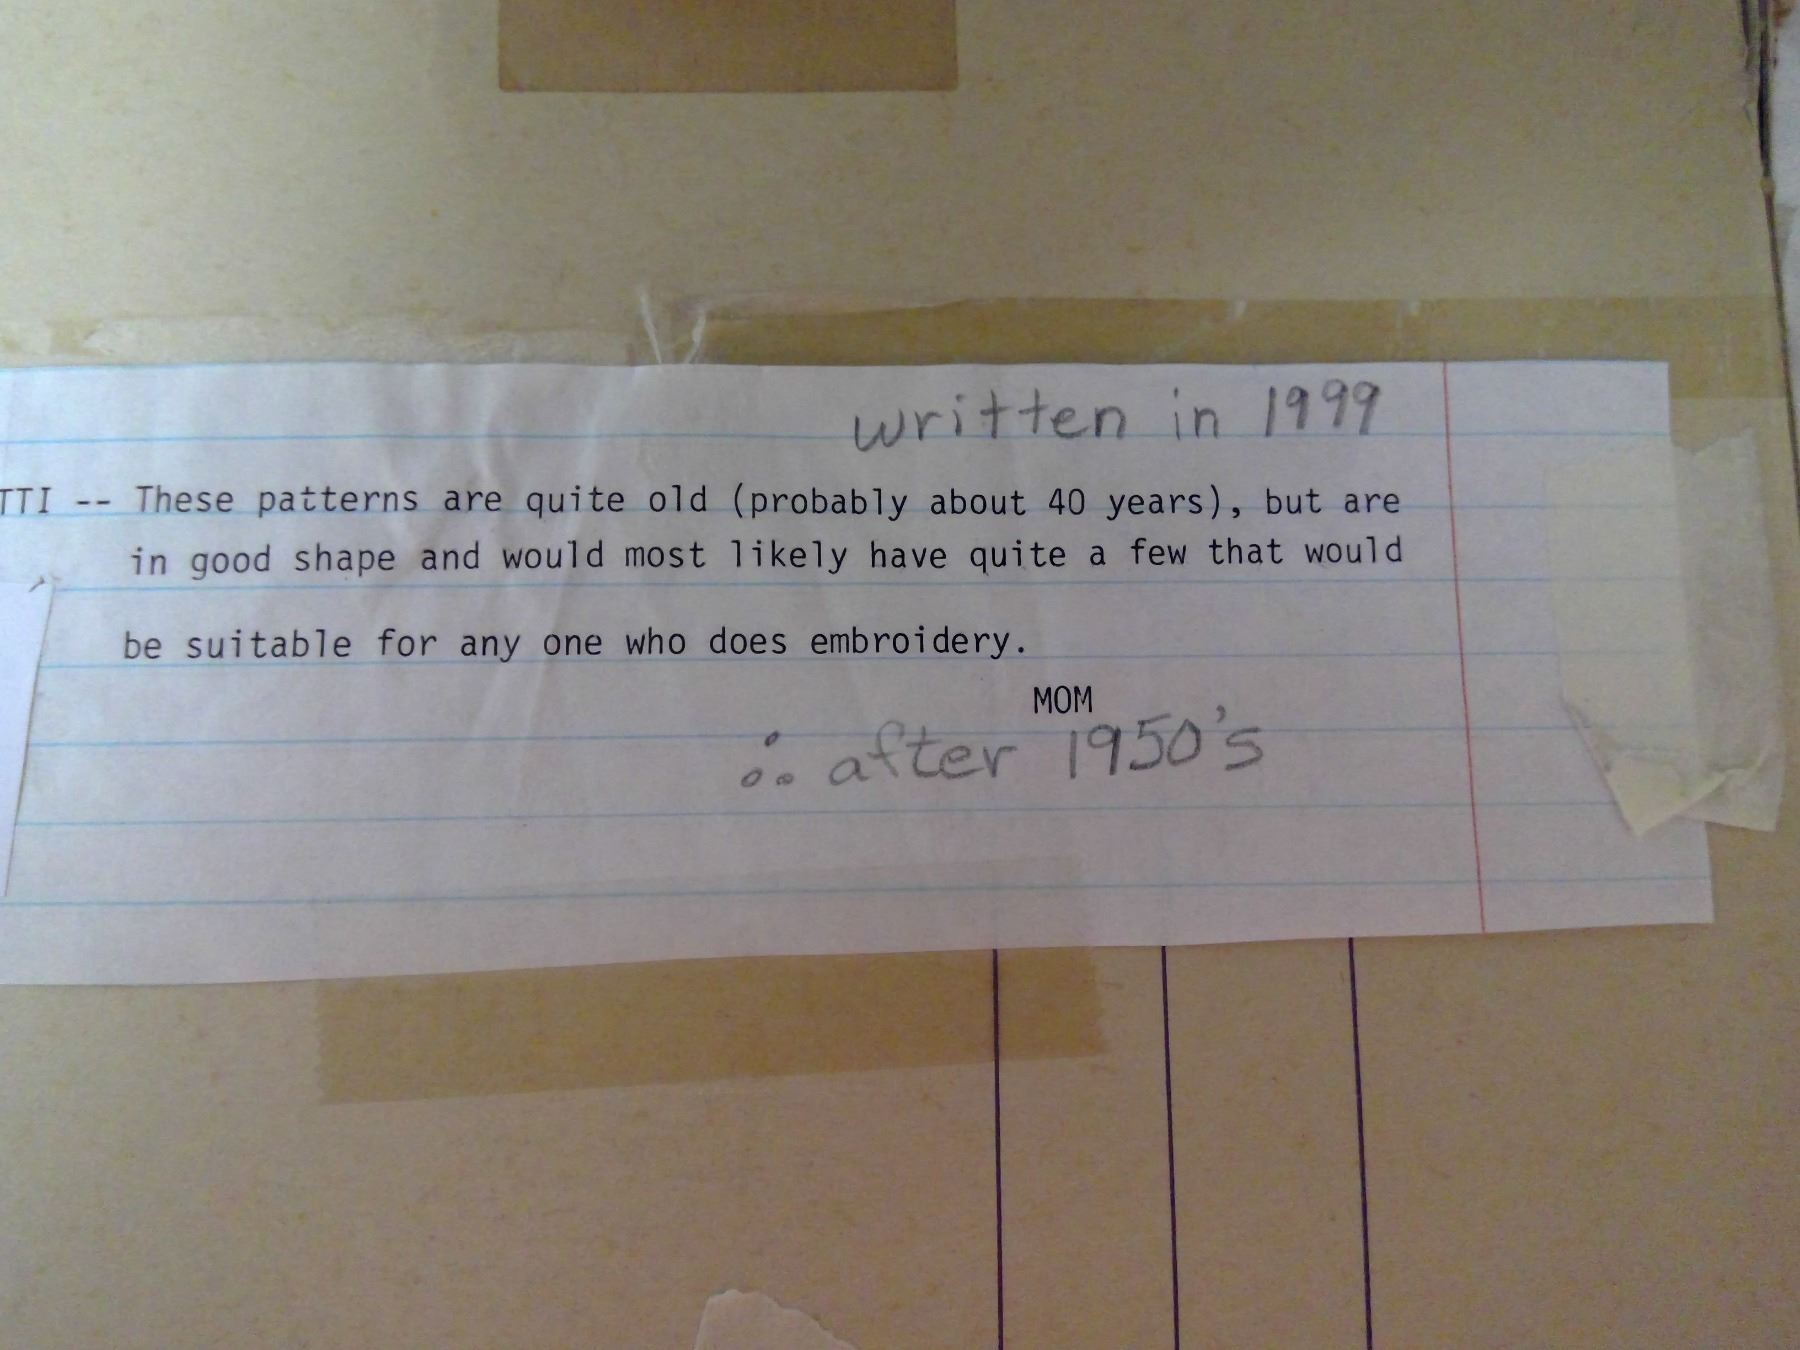 written in 1999
TTI -- These patterns are quite old (probably about 40 years), but are
in good shape and would most likely have quite a few that would
be suitable for any one who does embroidery.
MOM
∴ after 1950's